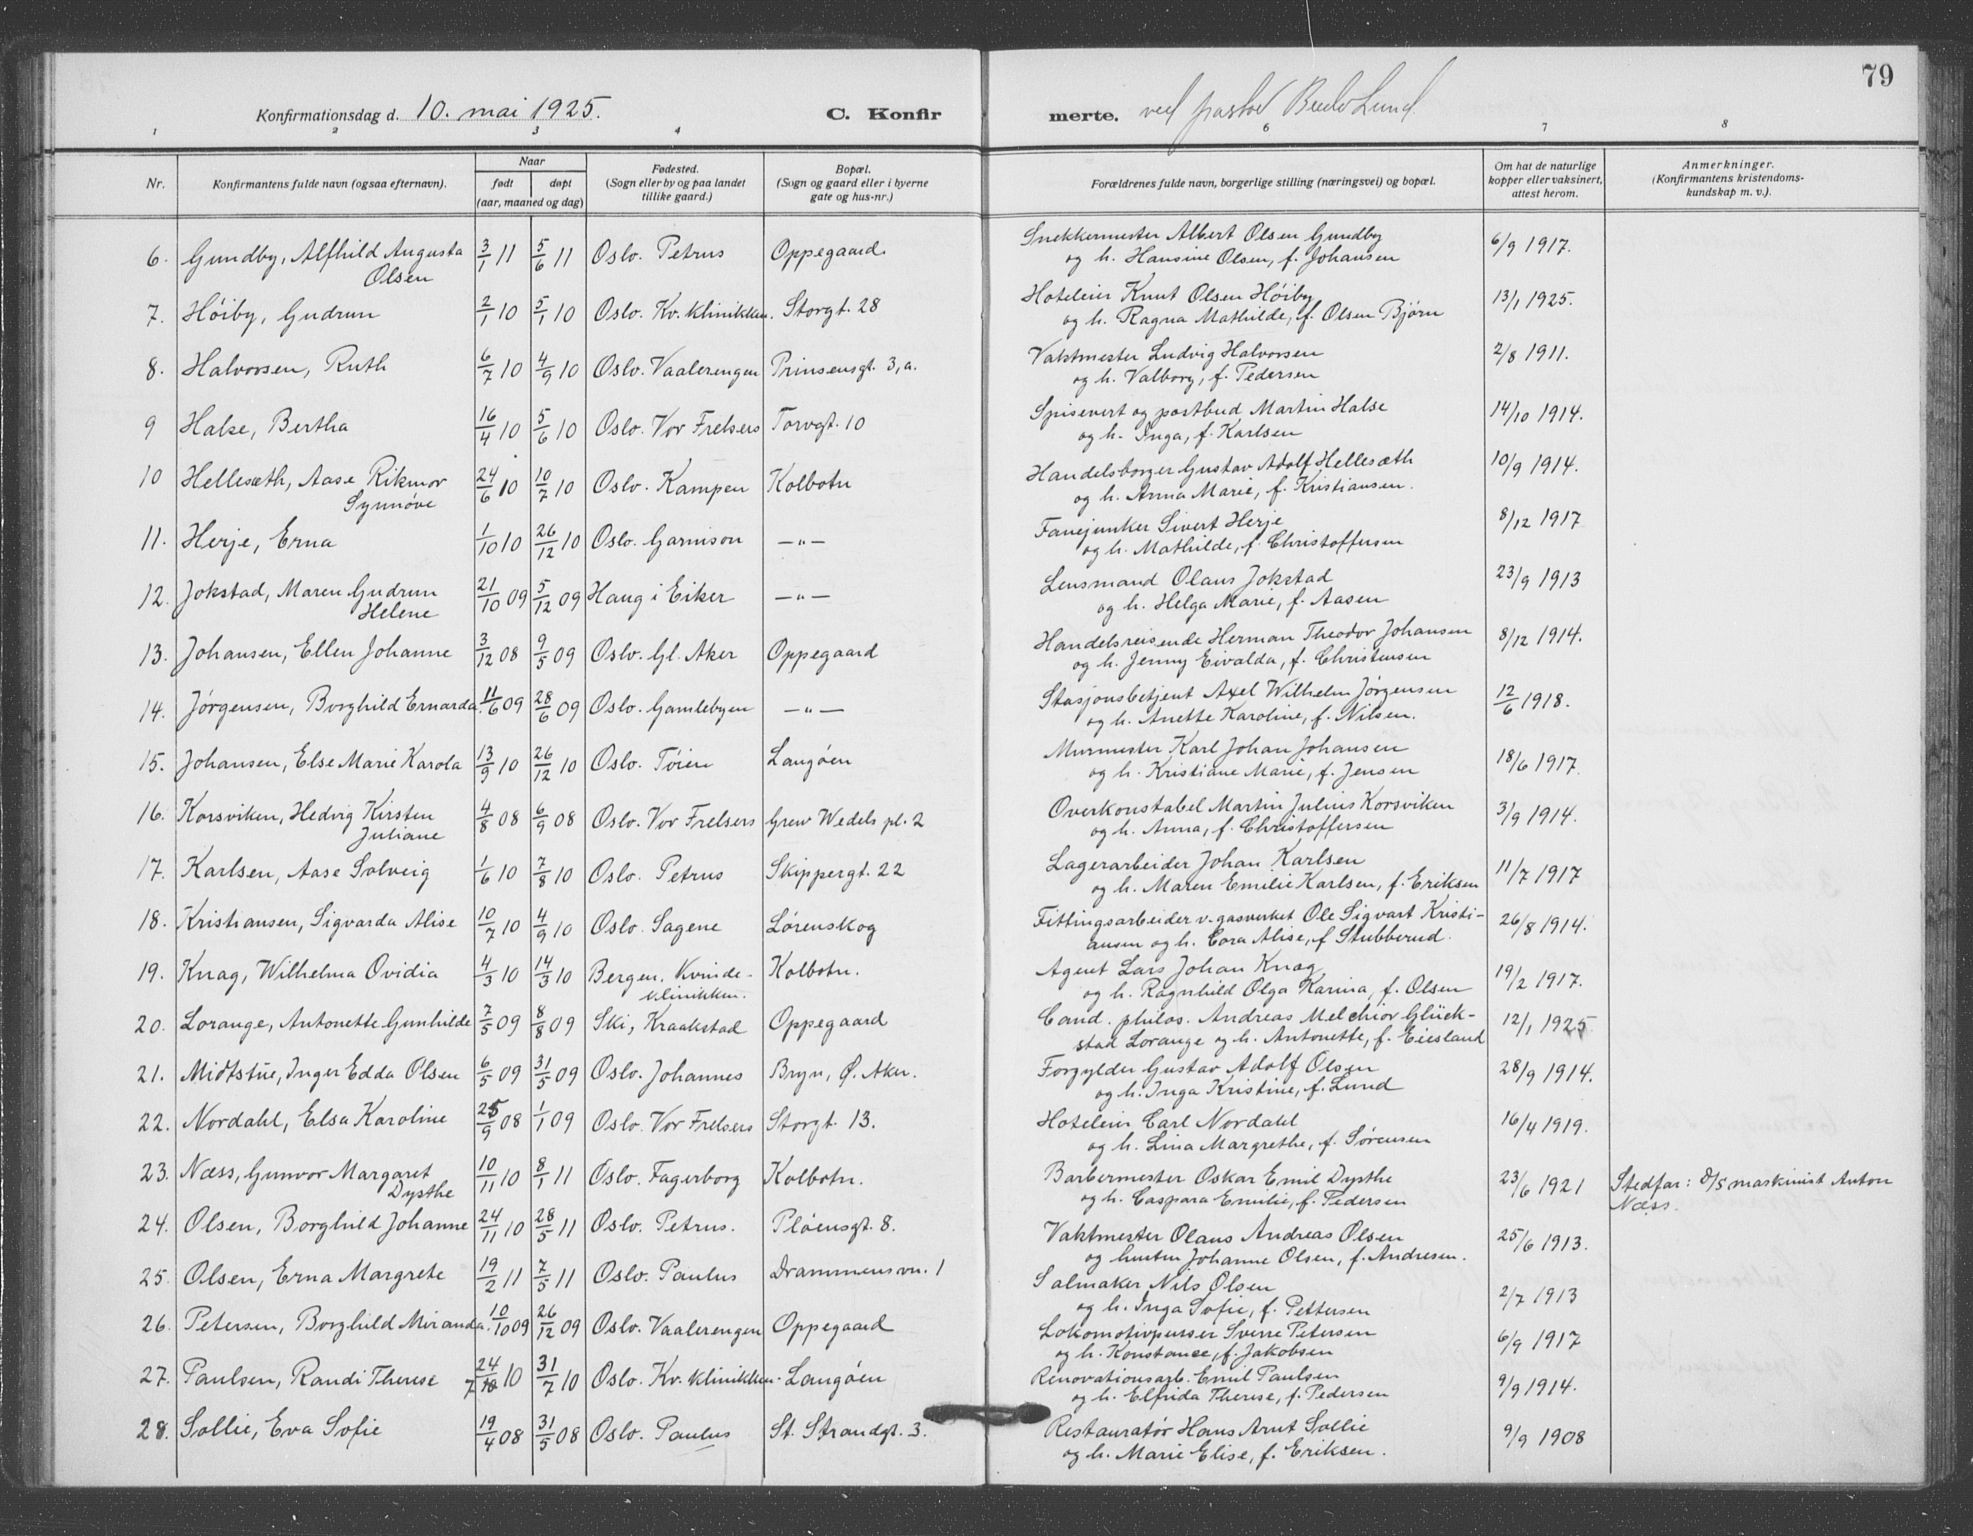 79
Konfirmationsdag d. 10. mai 1925.
C. Konfir
merte. ved pastor Lund.
1 2 3 4 5 6 7 8
Nr.
Konfirmantens fulde navn (ogsaa efternavn).
Naar
født døpt
(aar, maaned og dag)
Fødested.
(Sogn eller by og paa landet
tillike gaard.)
Bopæl.
(Sogn og gaard eller i byerne
gate og hus-nr.)
Forældrenes fulde navn, borgerlige stilling (næringsvei) og bopæl.
Om hat de naturlige
kopper eller vaksinert,
attest herom.
Anmerkninger.
(Konfirmantens kristendoms-
kundskap m. v.).
6. Gundby, Alfhild Augusta 3/1 11 5/6 11 Oslo. Petrus Oppegaard. Snekkermester Albert Olsen Gundby 6/9 1917.
Olsen og h. Hansine Olsen, f. Johansen
7. Høiby, Gudrun 2/1 10 5/1 10 Oslo. Kv. klinikken. Storgt. 28 Hoteleier Knut Olsen Høiby 13/1 1925.
og h. Ragna Mathilde, f. Olsen Bjørn
8. Halvorsen, Ruth 6/7 10 4/9 10 Oslo. Vaalerengen Prinsensgt. 3, a. Vaktmester Ludvig Halvorsen 2/8 1911.
og h. Valborg, f. Pedersen
9 Halse, Bertha 16/4 10 5/6 10 Oslo. Vor Frelsers Torvgt. 10 Spisevert og postbud Martin Halse 14/10 1914.
og h. Inga, f. Karlsen
10 Hellesæth, Aase Rikmor 24/6 10 10/7 10 Oslo. Kampen Kolbotn Handelsborger Gustav Adolf Hellesæth 10/9 1914.
Synnøve og h. Anna Marie, f. Kristiansen.
11. Herje, Erna 1/10 10 26/12 10 Oslo. Garnison —"— Fanejunker Sivert Herje 8/12 1917
og h. Mathilde, f. Christoffersen
12. Jokstad, Maren Gudrun 21/10 09 5/12 09 Haug i Eiker —"— Lensmand Olaus Jokstad 23/9 1913
Helene og h. Helga Marie, f. Aasen
13. Johansen, Ellen Johanne 3/12 08 9/5 09 Oslo. Gl. Aker Oppegaard Handelsreisende Herman Theodor Johansen 8/12 1914.
og h. Jenny Eivalda, f. Christensen
14. Jørgensen, Borghild Ernarda. 11/6 09 28/6 09 Oslo. Gamlebyen —"— Stasjonsbetjent Axel Wilhelm Jørgensen 12/6 1918.
og h. Anette Karoline, f. Nilsen.
15. Johansen, Else Marie Karola 13/9 10 26/12 10 Oslo. Tøien Langøen Murmester Karl Johan Johansen 18/6 1917.
og h. Kristiane Marie, f. Jensen
16. Korsviken, Hedvig Kirsten 4/8 08 6/9 08 Oslo. Vor Frelsers Grev Wedels pl. 2 Overkonstabel Martin Julius Korsviken 3/9 1914.
Juliane og h. Anna, f. Christoffersen
17. Karlsen, Aase Solveig 1/6 10 7/8 10 Oslo. Petrus Skippergt. 22 Lagerarbeider Johan Karlsen 11/7 1917
og h. Maren Emilie Karlsen, f. Eriksen
18. Kristiansen, Sigvarda Alise 10/7 10 4/9 10 Oslo. Sagene Lørenskog Fittingsarbeider v. gasverket Ole Sigvart Kristi- 26/8 1914.
ansen og h. Cora Alise, f. Stubberud.
19. Knag, Wilhelma Ovidia 4/3 10 14/3 10 Bergen. Kvinde- Kolbotn. Agent Lars Johan Knag 19/2 1917.
klinikken. og h. Ragnhild Olga Karina, f. Olsen
20. Lorange, Antonette Gunhilde 7/5 09 8/8 09 Ski, Kraakstad Oppegaard Cand. philos. Andreas Melchior Glück- 12/1 1925
stad Lorange og h. Antonette, f. Eiesland
21. Midtstue, Inger Edda Olsen 6/5 09 31/5 09 Oslo. Johannes Bryn, Ø. Aker. Forgylder Gustav Adolf Olsen 28/9 1914.
og h. Inga Kristine, f. Lund
22. Nordahl, Elsa Karoline 25/9 08 1/1 09 Oslo. Vor Frelsers Storgt. 13. Hoteleier Carl Nordahl 16/4 1919.
og h. Lina Margrethe, f. Sørensen
23. Næss, Gunvor Margaret 10/11 10 8/1 11 Oslo. Fagerborg Kolbotn. Barbermester Oskar Emil Dysthe 23/6 1921 Stedfar: d/s maskinist Anton
Dysthe og h. Caspara Emilie, f. Pedersen Næss.
24. Olsen, Borghild Johanne 24/11 10 28/5 11 Oslo. Petrus. Pløensgt. 8. Vaktmester Olaus Andreas Olsen 25/6 1913.
og hustru Johanne Olsen, f. Andresen.
25. Olsen, Erna Margrete 19/2 11 7/5 11 Oslo. Paulus Drammensvn. 1 Salmaker Nils Olsen 2/7 1913
og h. Inga Sofie, f. Pettersen
26. Petersen, Borghild Miranda. 10/10 09 26/12 09 Oslo. Vaalerengen Oppegaard Lokomotivpusser Sverre Petersen 6/9 1917
og h. Konstanse, f. Jakobsen
27. Paulsen, Randi Therese 24/7 10 31/7 10 Oslo. Kv. klinikken. Langøen Renovationsarb. Emil Paulsen 9/9 1914.
og h. Elfrida Therese, f. Pedersen
28. Sollie, Eva Sofie 19/4 08 31/5 08 Oslo. Paulus St. Strandgt. 3. Restauratør Hans Arnt Sollie 9/9 1908
og h. Marie Elise, f. Eriksen.